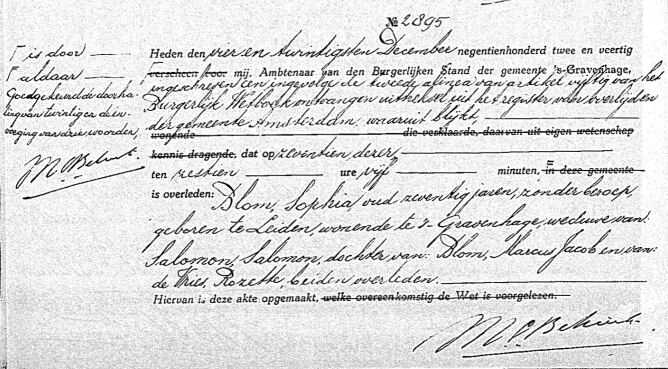 № 2895
Heden den vier en twintigsten December negentienhonderd twee en veertig
verscheen voor mij, Ambtenaar van den Burgerlijken Stand der gemeente 's-Gravenhage,
ingeschreven een ingevolge de tweede alinea van artikel vijftig van het
Burgerlijk Wetboek ontvangen uittreksel uit het register van overlijden
der gemeente Amsterdam, waaruit blijkt,
wonende die verklaarde, daarvan uit eigen wetenschap
kennis dragende, dat op zeventien dezer
ten zestien ure vijf minuten, in deze gemeente
is overleden: Blom, Sophia, oud zeventig jaren, zonder beroep,
geboren te Leiden, wonende te 's-Gravenhage, weduwe van:
Salomon, Salomon, dochter van: Blom, Marcus Jacob en van:
de Vries, Rozette, beiden overleden.
Hiervan is deze akte opgemaakt, welke overeenkomstig de Wet is voorgelezen.
Γ is door
Γ aldaar
Goedgekeurd de doorha-
ling van twintig en de in-
voeging van drie woorden.